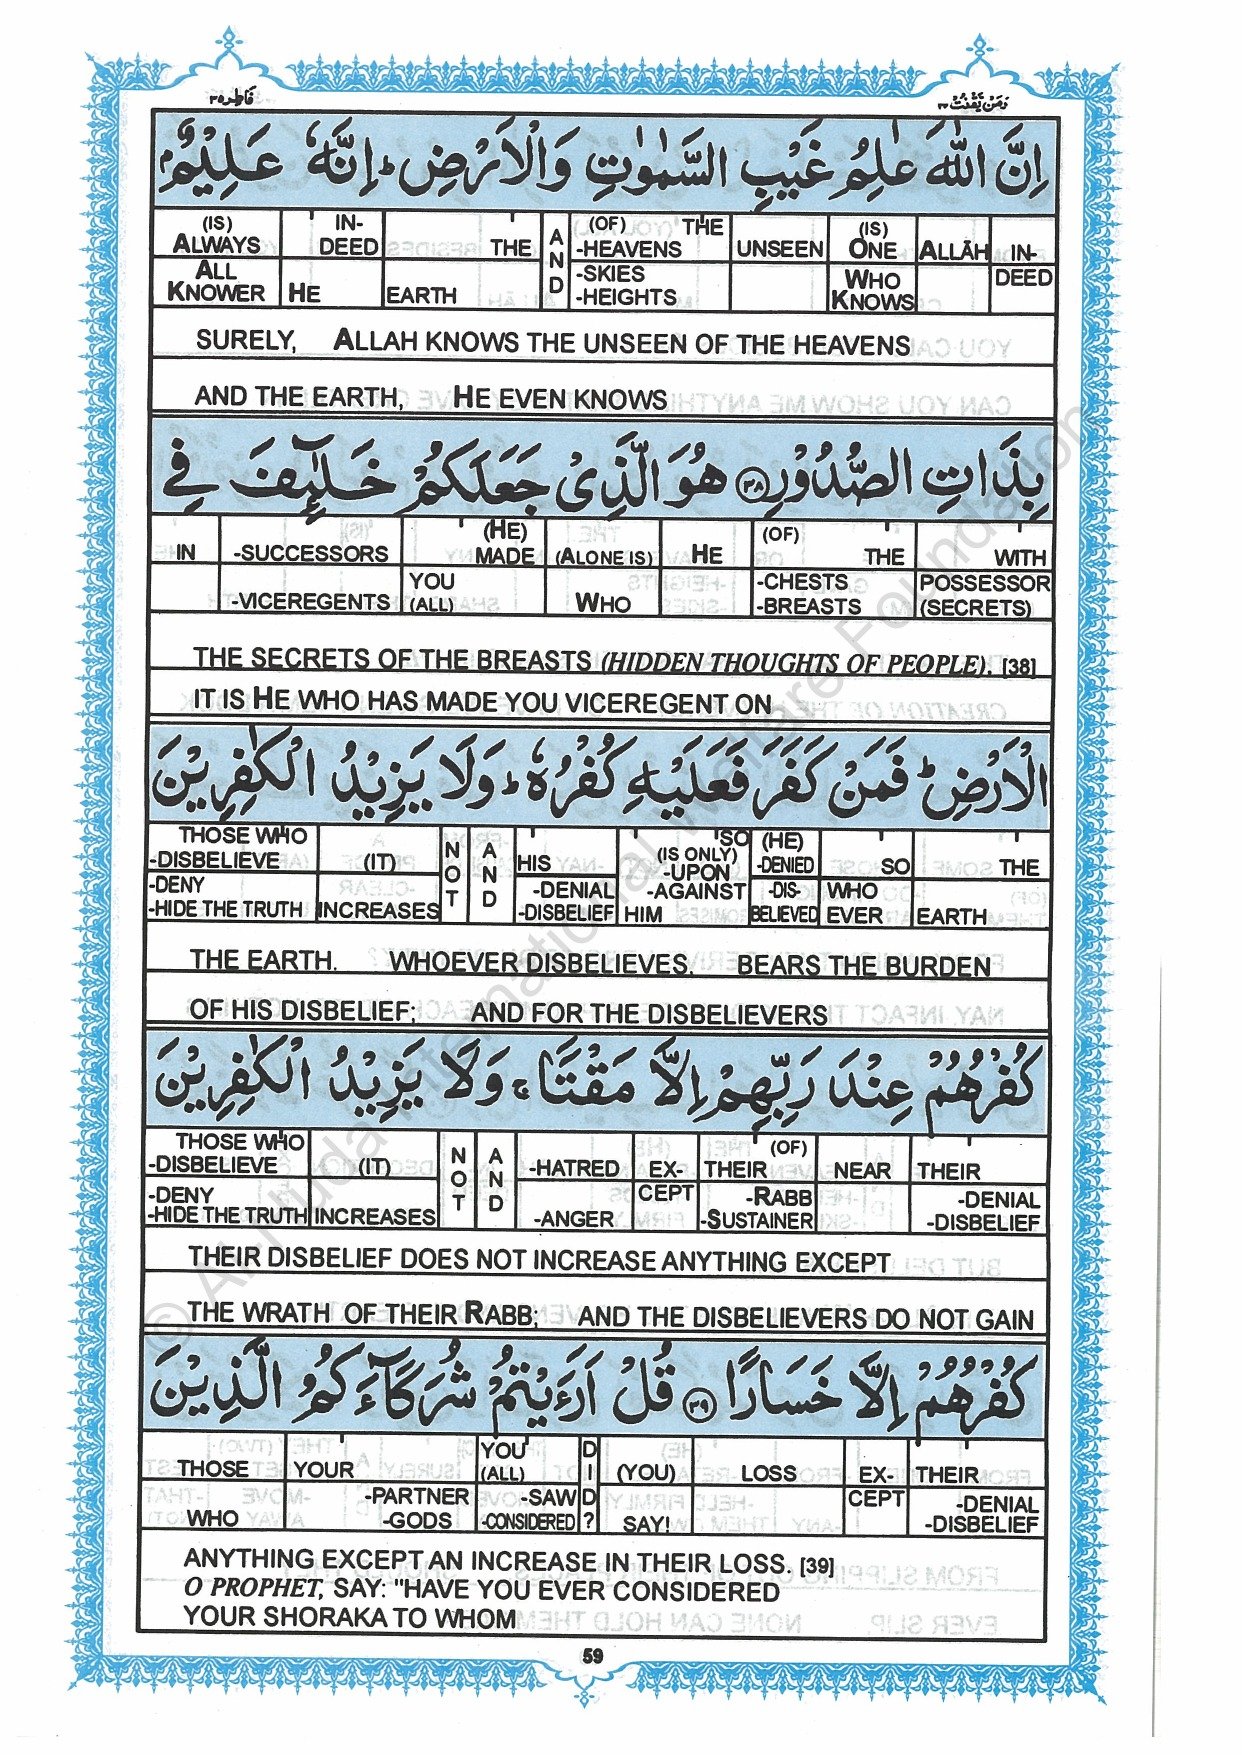 فَاطِر ٣٥
وَمَنْ يَّقْنُتْ ٢٢
اِنَّ اللّٰهَ عٰلِمُ غَيْبِ السَّمٰوٰتِ وَالْاَرْضِ ؕ اِنَّهٗ عَلِيْمٌۢ
(IS) ALWAYS ALL KNOWER
IN-DEED HE
THE EARTH
AND
(OF) THE -HEAVENS -SKIES -HEIGHTS
UNSEEN
(IS) ONE WHO KNOWS
ALLĀH
IN-DEED
SURELY, ALLAH KNOWS THE UNSEEN OF THE HEAVENS
AND THE EARTH, HE EVEN KNOWS
بِذَاتِ الصُّدُوْرِ ﴿٣٨﴾ هُوَ الَّذِىْ جَعَلَكُمْ خَلٰٓئِفَ فِى
IN
-SUCCESSORS -VICEREGENTS
(HE) MADE YOU (ALL)
(ALONE IS) WHO
HE
(OF) THE -CHESTS -BREASTS
WITH POSSESSOR (SECRETS)
THE SECRETS OF THE BREASTS (HIDDEN THOUGHTS OF PEOPLE). [38]
IT IS HE WHO HAS MADE YOU VICEREGENT ON
الْاَرْضِ ؕ فَمَنْ كَفَرَ فَعَلَيْهِ كُفْرُهٗ ؕ وَلَا يَزِيْدُ الْكٰفِرِيْنَ
THOSE WHO -DISBELIEVE -DENY -HIDE THE TRUTH
(IT) INCREASES
NOT
AND
HIS -DENIAL -DISBELIEF
SO (IS ONLY) -UPON -AGAINST HIM
(HE) -DENIED -DIS-BELIEVED
SO WHO EVER
THE EARTH
THE EARTH. WHOEVER DISBELIEVES, BEARS THE BURDEN
OF HIS DISBELIEF; AND FOR THE DISBELIEVERS
كُفْرُهُمْ عِنْدَ رَبِّهِمْ اِلَّا مَقْتًا ۚ وَلَا يَزِيْدُ الْكٰفِرِيْنَ
THOSE WHO -DISBELIEVE -DENY -HIDE THE TRUTH
(IT) INCREASES
NOT
AND
-HATRED -ANGER
EX-CEPT
(OF) THEIR -RABB -SUSTAINER
NEAR
THEIR -DENIAL -DISBELIEF
THEIR DISBELIEF DOES NOT INCREASE ANYTHING EXCEPT
THE WRATH OF THEIR RABB; AND THE DISBELIEVERS DO NOT GAIN
كُفْرُهُمْ اِلَّا خَسَارًا ﴿٣٩﴾ قُلْ اَرَءَيْتُمْ شُرَكَآءَكُمُ الَّذِيْنَ
THOSE WHO
YOUR -PARTNER -GODS
YOU (ALL) -SAW -CONSIDERED
DID?
(YOU) SAY!
LOSS
EX-CEPT
THEIR -DENIAL -DISBELIEF
ANYTHING EXCEPT AN INCREASE IN THEIR LOSS. [39]
O PROPHET, SAY: "HAVE YOU EVER CONSIDERED
YOUR SHORAKA TO WHOM
59
© Al-Huda International Welfare Foundation